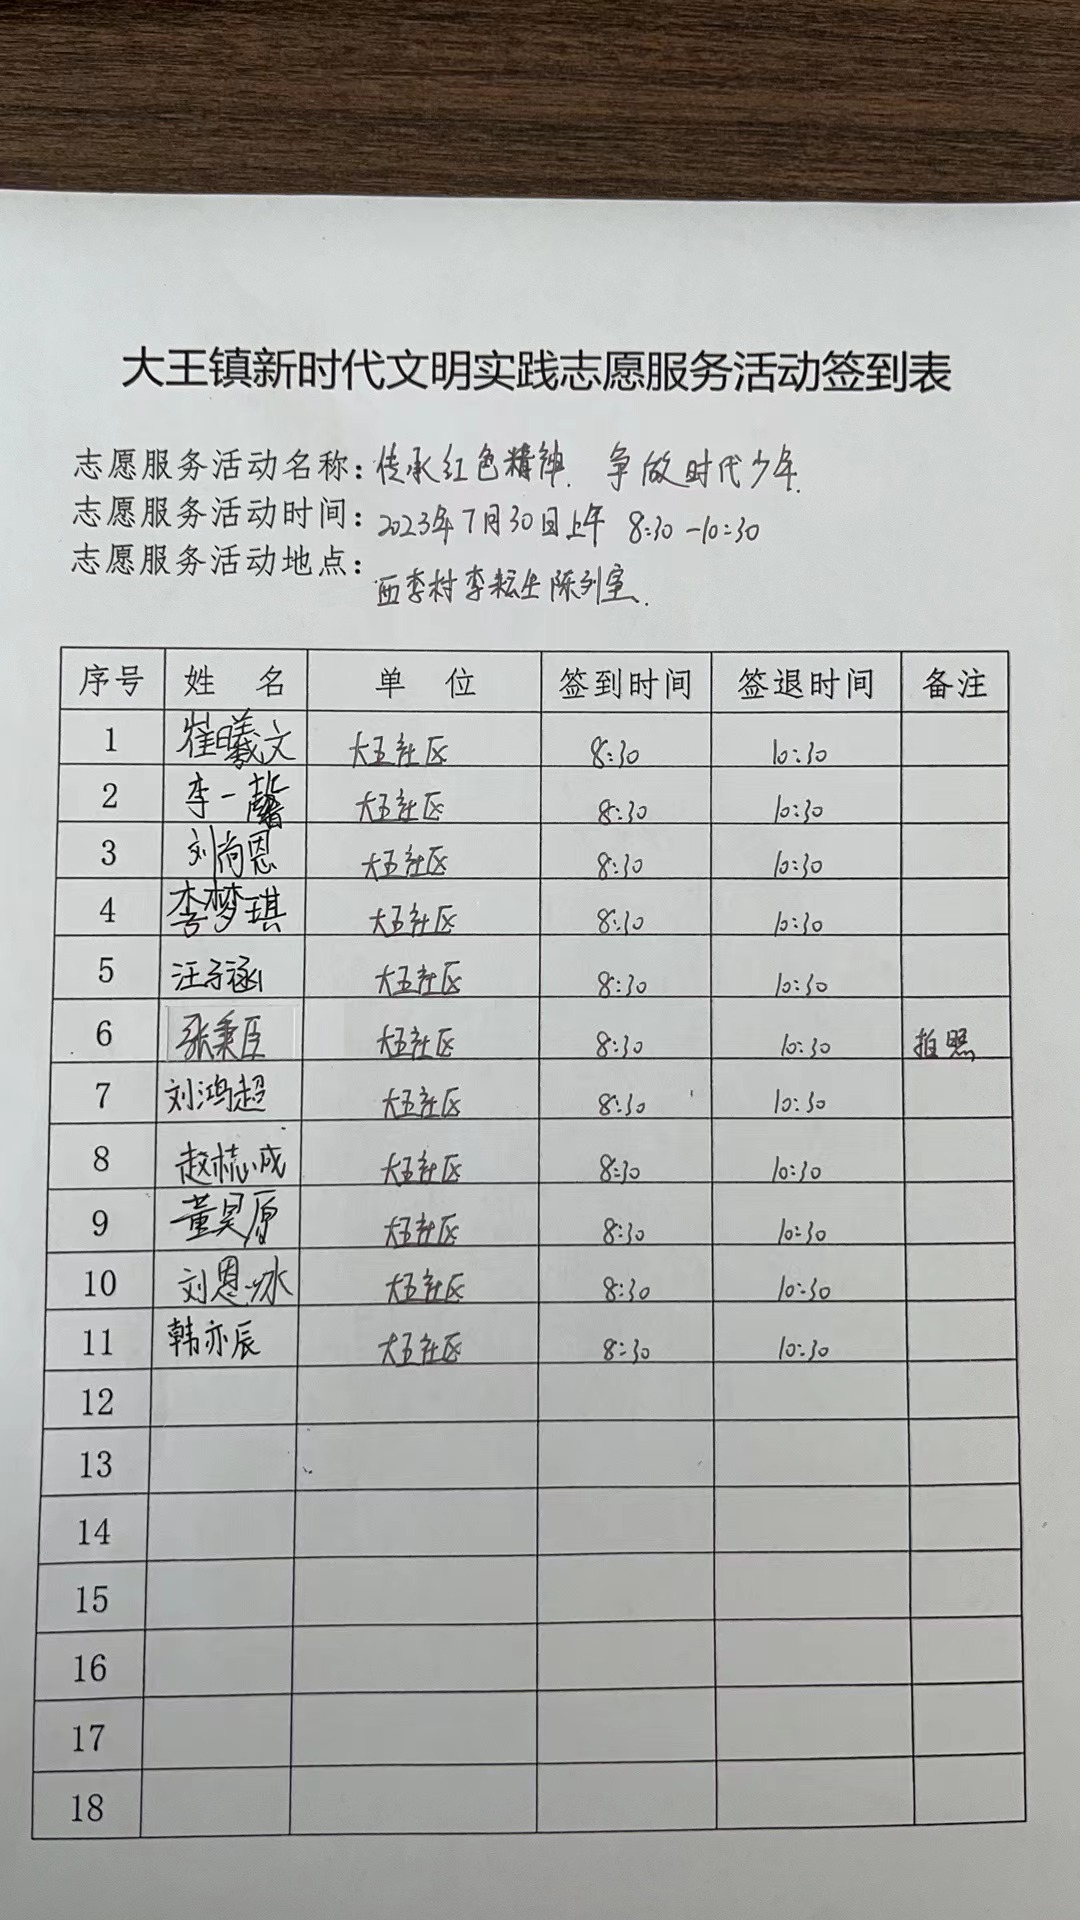 大王镇新时代文明实践志愿服务活动签到表
志愿服务活动名称：传承红色精神 争做时代少年
志愿服务活动时间：2023年7月30日上午 8:30-10:30
志愿服务活动地点：西李村李耘生陈列室
序号 姓 名 单 位 签到时间 签退时间 备注
1 崔曦文 大王社区 8:30 10:30
2 李一馨 大王社区 8:30 10:30
3 刘尚恩 大王社区 8:30 10:30
4 李梦琪 大王社区 8:30 10:30
5 汪子涵 大王社区 8:30 10:30
6 张秉臣 大王社区 8:30 10:30 拍照
7 刘鸿超 大王社区 8:30 10:30
8 赵梽成 大王社区 8:30 10:30
9 董昊原 大王社区 8:30 10:30
10 刘恩 大王社区 8:30 10:30
11 韩亦辰 大王社区 8:30 10:30
12
13
14
15
16
17
18